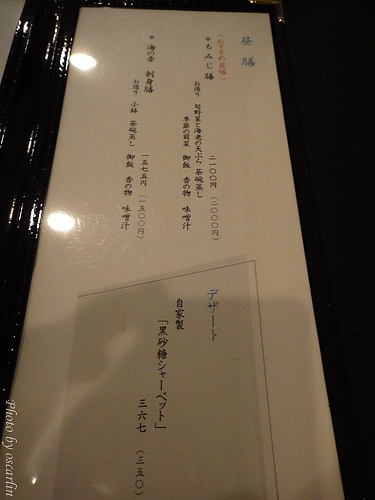 昼膳
(おすすめ昼膳)
＊もみじ膳
二一〇〇円 (二〇〇〇円)
お造り 旬野菜と海老の天ぷら 茶碗蒸し
季節の前菜 御飯 香の物 味噌汁
＊海の幸 刺身膳
一五七五円 (一五〇〇円)
お造り 小鉢 茶碗蒸し 御飯 香の物 味噌汁
デザート
自家製
「黒砂糖シャーベット」
三六七 (三五〇)
Photo by oscarlin